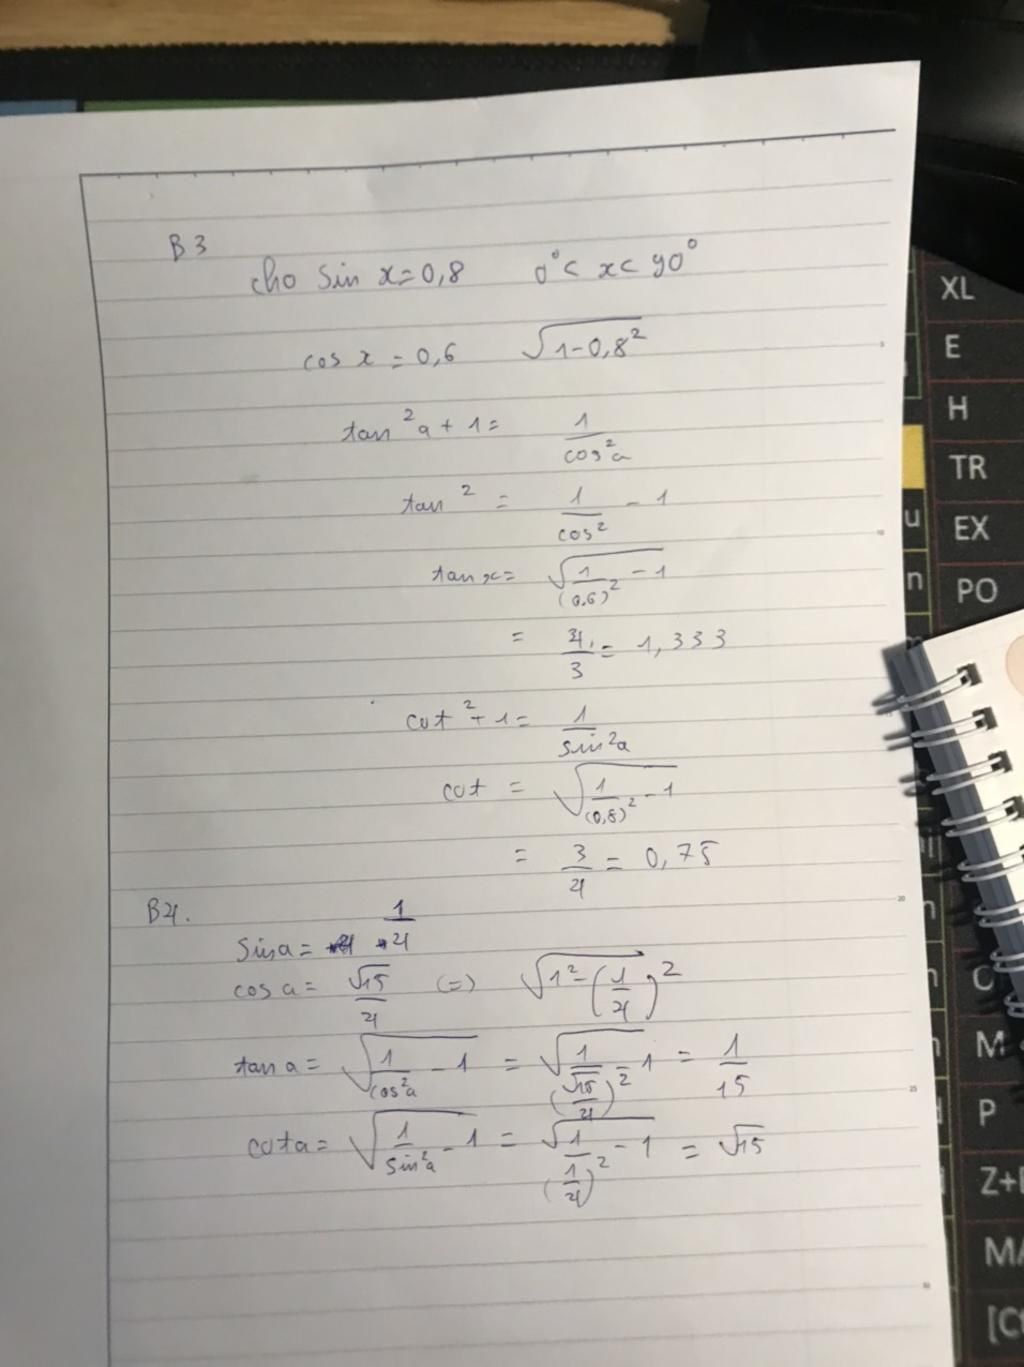 B3
cho sin x = 0,8 0° < x < 90°
cos x = 0,6 √(1-0,8²)
tan²a + 1 = 1/cos²a
tan² = 1/cos² - 1
tan x = √(1/(0,6)² - 1)
= 4/3 = 1,333
cot² + 1 = 1/sin²a
cot = √(1/(0,8)² - 1)
= 3/4 = 0,75
B4.
sin a = 1/4
cos a = √15/4 (=) √(1² - (1/4)²)
tan a = √(1/cos²a - 1) = √(1/(√15/4)² - 1) = 1/15
cot a = √(1/sin²a - 1) = √(1/(1/4)² - 1) = √15
XL
E
H
TR
EX
PO
u
n
M
P
Z+